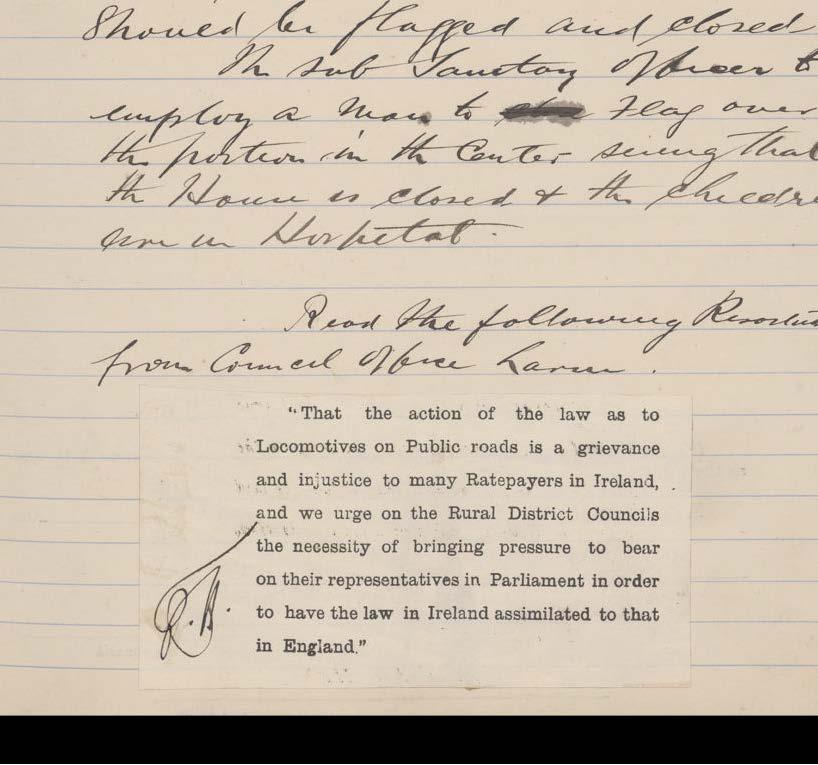 Should be flagged and closed
The sub Sanitary Officer to
employ a man to Flag over
the portion in the Center seeing that
the House is closed & the
are in Hospital.
Read the following
from Council Office Larne.
"That the action of the law as to
Locomotives on Public roads is a grievance
and injustice to many Ratepayers in Ireland,
and we urge on the Rural District Councils
the necessity of bringing pressure to bear
on their representatives in Parliament in order
to have the law in Ireland assimilated to that
in England."